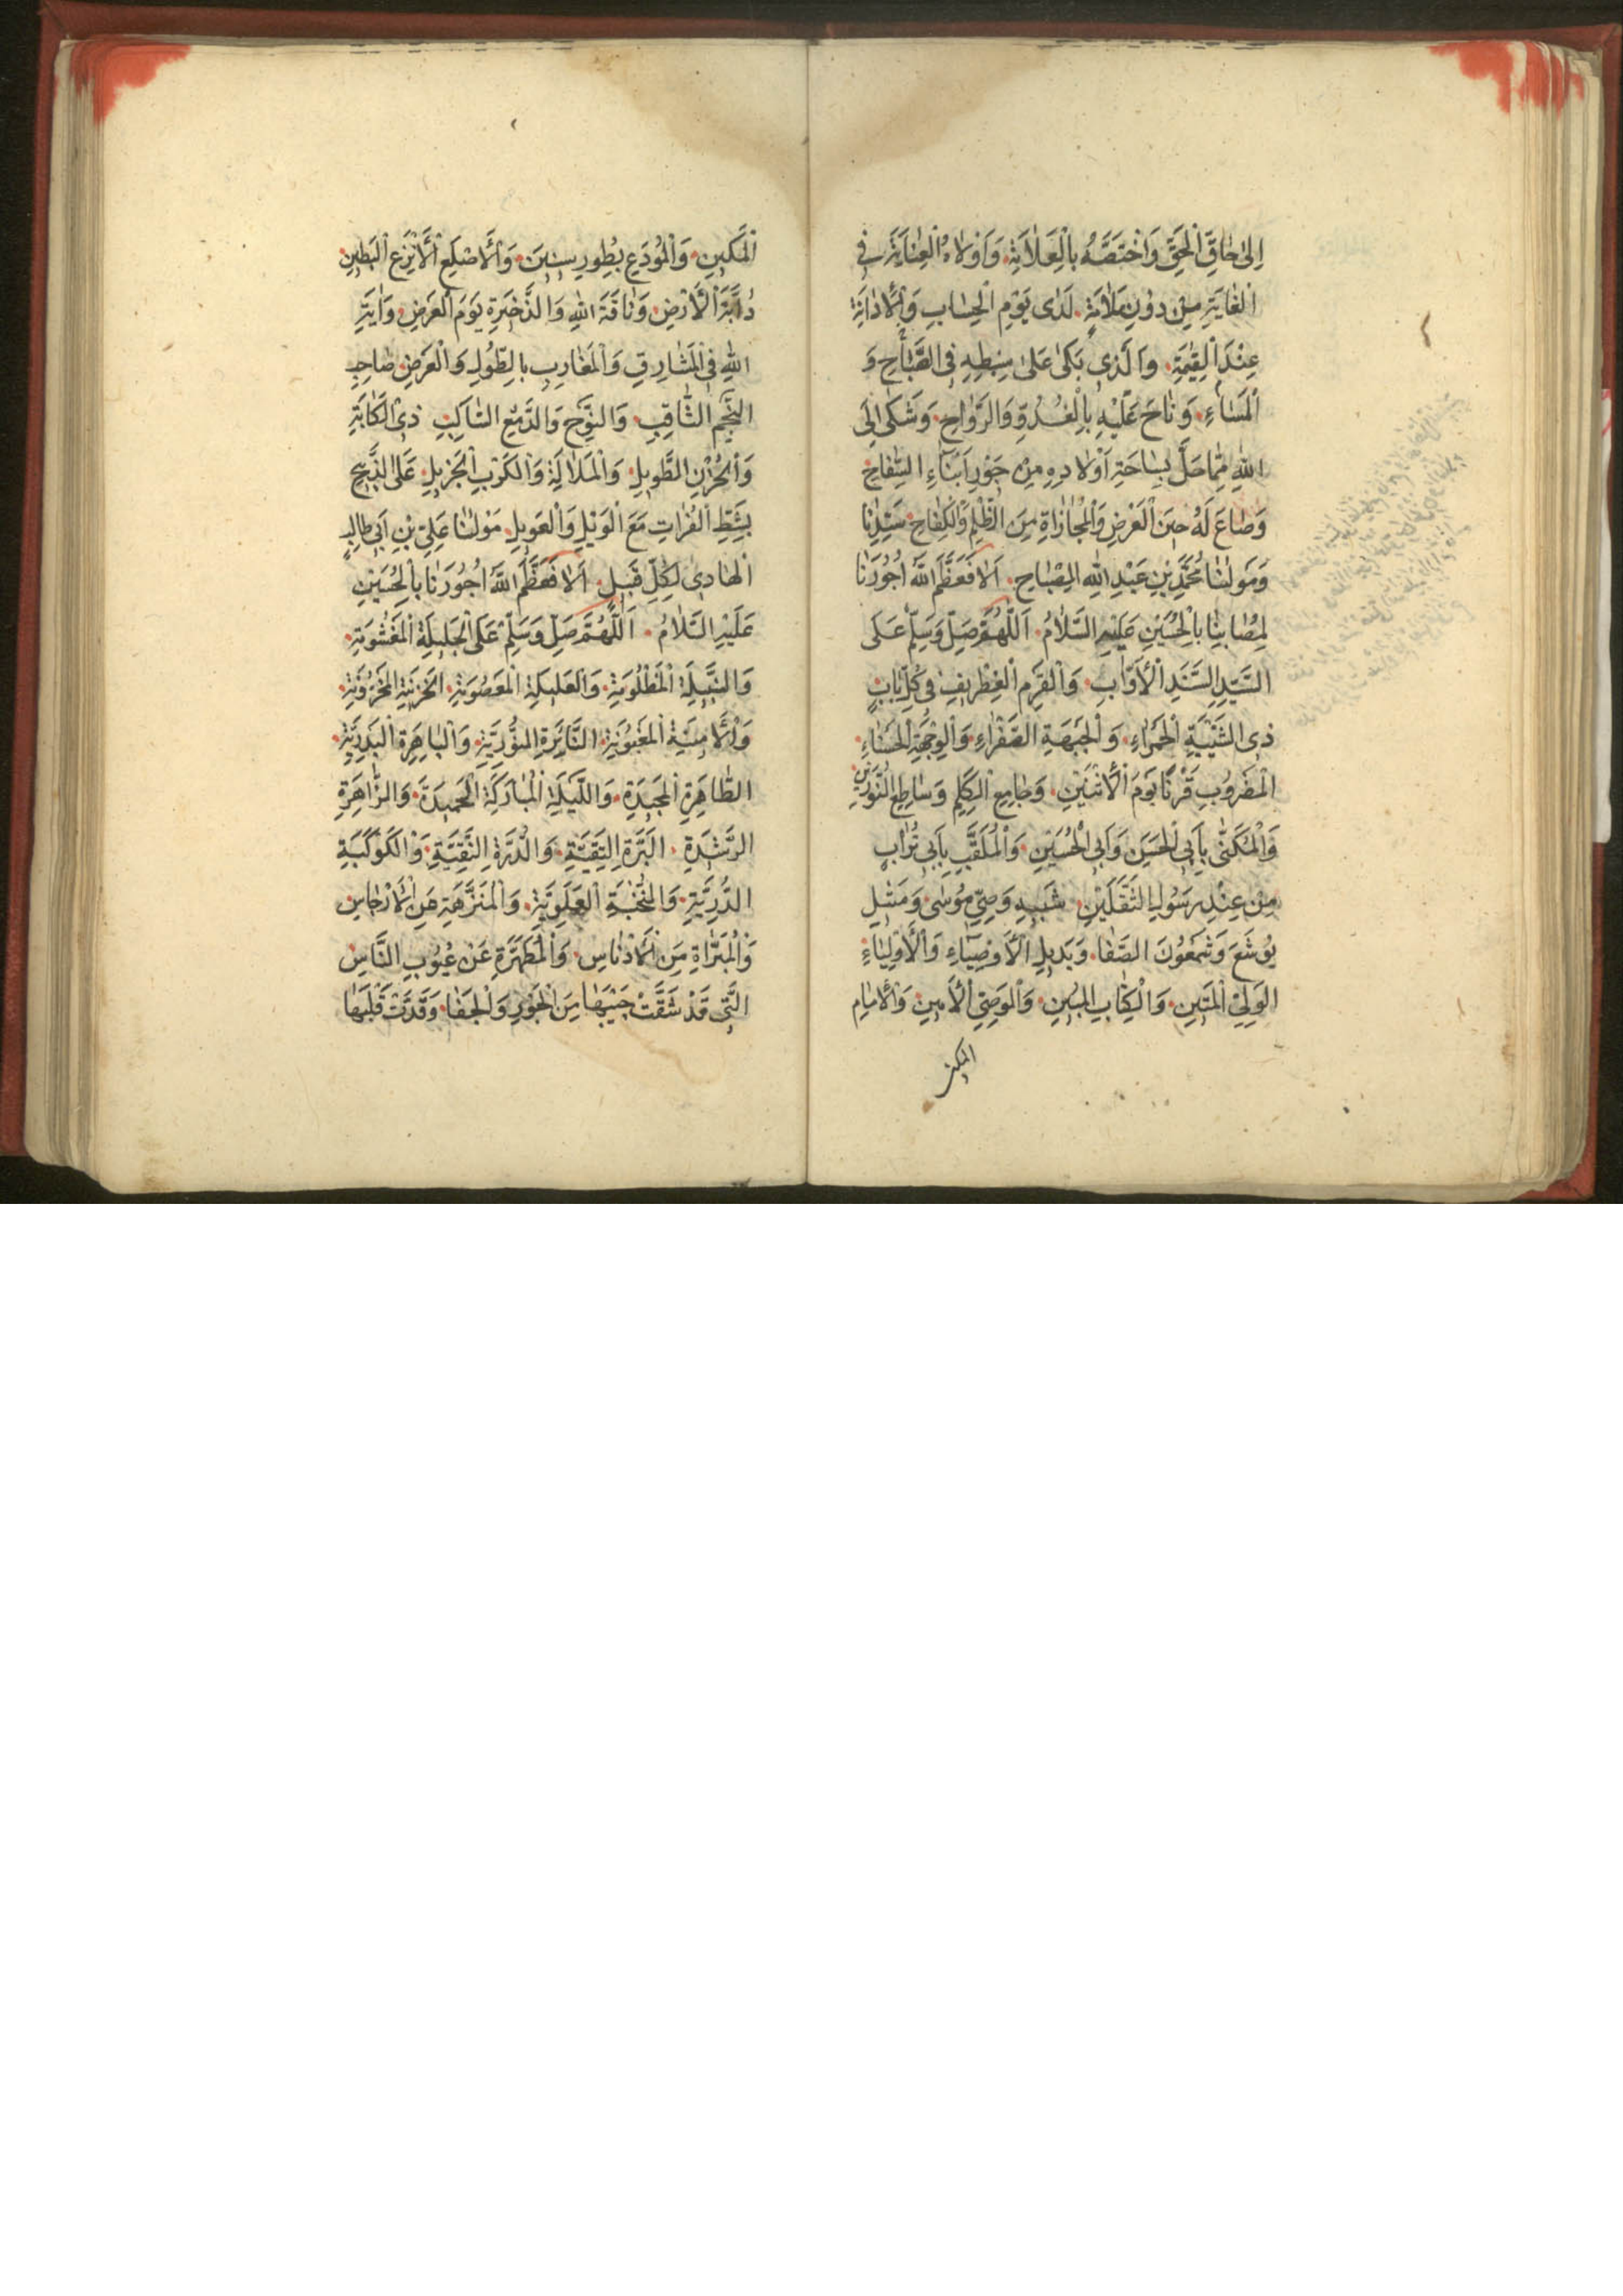 اِلىٰ حٰاقِّ الْحَقِّ وَاخْتَصَّهُ بِالْعَلاٰمَةِ وَاَوْلاٰهُ الْعِنٰايَةَ في
الْغٰايَةِ مِنْ دُونِ مَلاٰمَةٍ لَدٰى يَوْمِ الْحِسٰابِ وَالْاِدٰانَةِ
عِنْدَ الْقِيٰمَةِ وَالَّذي بَكىٰ عَلىٰ سِبْطِهِ فِي الصَّبٰاحِ وَ
الْمَسٰاءِ وَنٰاحَ عَلَيْهِ بِالْغُدُوِّ وَالرَّوٰاحِ وَشَكىٰ اِلَى
اللهِ مِمّا حَلَّ بِسٰاحَةِ اَوْلادِهِ مِنْ جَوْرِ اَبْنٰاءِ السِّفاحِ
وَضٰاعَ لَهُ حينَ الْعَرْضِ وَالْمُجٰازٰاةِ مِنَ الظُّلْمِ وَالْكِفٰاحِ سَيِّدِنٰا
وَمَوْلٰنٰا مُحَمَّدِ بْنِ عَبْدِ اللهِ الْمِصْبٰاحِ اَلاٰ فَعَظَّمَ اللهُ اُجُورَنٰا
لِمُصٰابِنٰا بِالْحُسَيْنِ عَلَيْهِ السَّلاٰمُ اَللّٰهُمَّ صَلِّ وَسَلِّمْ عَلَى
السَّيِّدِ السَّنَدِ الْاَوّٰابِ وَالْقَرْمِ الْغِطْريفِ في كُلِّ بٰابٍ
ذِي الشَّيْبَةِ الْحَمْرٰاءِ وَالْجَبْهَةِ الصَّفْرٰاءِ وَالْوَجْهَةِ الْحَسْنٰاءِ
الْمَضْرُوبِ قَرْنًا يَوْمَ الْاِثْنَيْنِ وَجٰامِعِ الْكَلِمِ وَسٰاطِعِ النُّورَيْنِ
وَالْمُكَنّٰى بِاَبِي الْحَسَنِ وَاَبِي الْحُسَيْنِ وَالْمُلَقَّبِ بِاَبي تُرٰابٍ
مِنْ عِنْدِ رَسُولِ الثَّقَلَيْنِ شَبيهِ وَصِيِّ مُوسٰى وَمَثيلِ
يُوشَعَ وَشَمْعُونَ الصَّفٰا وَبَديلِ الْاَوْصِيٰاءِ وَالْاَوْلِيٰاءِ
الْوَلِيِّ الْمَتينِ وَالْكِتٰابِ الْمُبينِ وَالْوَصِيِّ الْاَمينِ وَالْاِمٰامِ
المكين
الْمَكينِ وَالْمُودَعِ بِطُورِ سينينَ وَالْاَصْلَعِ الْاَنْزَعِ الْبَطينِ
دٰابَّةِ الْاَرْضِ وَنٰاقَةِ اللهِ وَالذَّخيرَةِ يَوْمَ الْعَرْضِ وَاٰيَةِ
اللهِ فِي الْمَشٰارِقِ وَالْمَغٰارِبِ بِالطُّولِ وَالْعَرْضِ صٰاحِبِ
النَّجْمِ الثّٰاقِبِ وَالنَّوْحِ وَالدَّمْعِ السّٰاكِبِ ذِي الْكَاٰبَةِ
وَالْحُزْنِ الطَّويلِ وَالْمَلاٰلَةِ وَالْكَرْبِ الْجَزيلِ عَلَى الذَّبيحِ
بِشَطِّ الْفُرٰاتِ مَعَ الْوَيْلِ وَالْعَويلِ مَوْلٰنٰا عَلِيِّ بْنِ اَبي طٰالِبٍ
الْهٰادي لِكُلِّ قَبيلٍ اَلاٰ فَعَظَّمَ اللهُ اُجُورَنٰا بِالْحُسَيْنِ
عَلَيْهِ السَّلاٰمُ اَللّٰهُمَّ صَلِّ وَسَلِّمْ عَلَى الْجَليلَةِ الْمَغْشُومَةِ
وَالنَّبيلَةِ الْمَظْلُومَةِ وَالْعَليلَةِ الْمَغْصُوبَةِ الْحَزينَةِ الْمَحْزُونَةِ
وَالْاَمينَةِ الْمَغْبُونَةِ النَّائِرَةِ النُّورِيَّةِ وَالْبٰاهِرَةِ الْبَدْرِيَّةِ
الطّٰاهِرَةِ الْمَجيدَةِ وَاللَّيْلَةِ الْمُبٰارَكَةِ الْحَميدَةِ وَالزّٰاهِرَةِ
الرَّشيدَةِ الْبَرَّةِ التَّقِيَّةِ وَالدُّرَّةِ النَّقِيَّةِ وَالْكَوْكَبَةِ
الدُّرِّيَّةِ وَالنُّخْبَةِ الْعَلَوِيَّةِ وَالْمُنَزَّهَةِ عَنِ الْاَرْجٰاسِ
وَالْمُبَرّٰاةِ مِنَ الْاَدْنٰاسِ وَالْمُطَهَّرَةِ عَنْ عُيُوبِ النّٰاسِ
الَّتي قَدْ شَقَّتْ جَيْبَهٰا مِنَ الْجَوْرِ وَالْجَفٰا وَقَدَّتْ قَلْبَهٰا